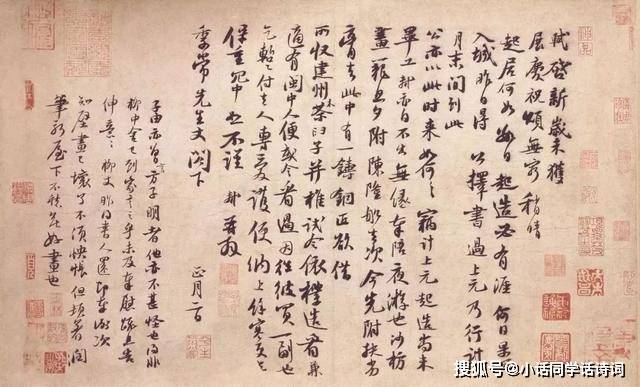 軾啓新歲未獲
展慶祝頌無窮稍晴
起居何如數日起造必有涯何日果可
入城昨日得公擇書過上元乃行計
月末間到此
公亦以此時來如何如何竊計上元起造尚未
畢工軾亦自不出無緣奉陪夜遊也沙枋
畫籠旦夕附陳隆舩去次今先附扶劣
膏去此中有一鑄銅匠欲借
所收建州木茶臼子并椎試令依樣造看兼
適有閩中人便或令看過因往彼買一副也
乞蹔付去人專愛護便納上餘寒更乞
保重冗中恕不謹軾再拜
季常先生丈閤下
正月二日
子由亦曾言方子明者他亦不甚怪也得非
柳中舍已到家言之乎未及奉慰疏且告
伸意伸意柳丈昨得書人還即奉謝次
知壁畫已壞了不須怏悵但頓著潤
筆新屋下不愁無好畫也
搜狐号@小话同学话诗词